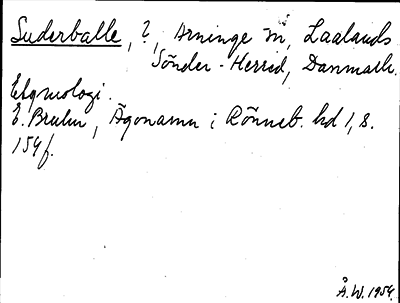 Suderballe, ?, Arninge sn, Laalands
Sönder-Herred, Danmark.
Etymologi.
E. Bruhn, Ägonamn i Rönneb. hd 1, s.
154f.
Å.W. 1954.